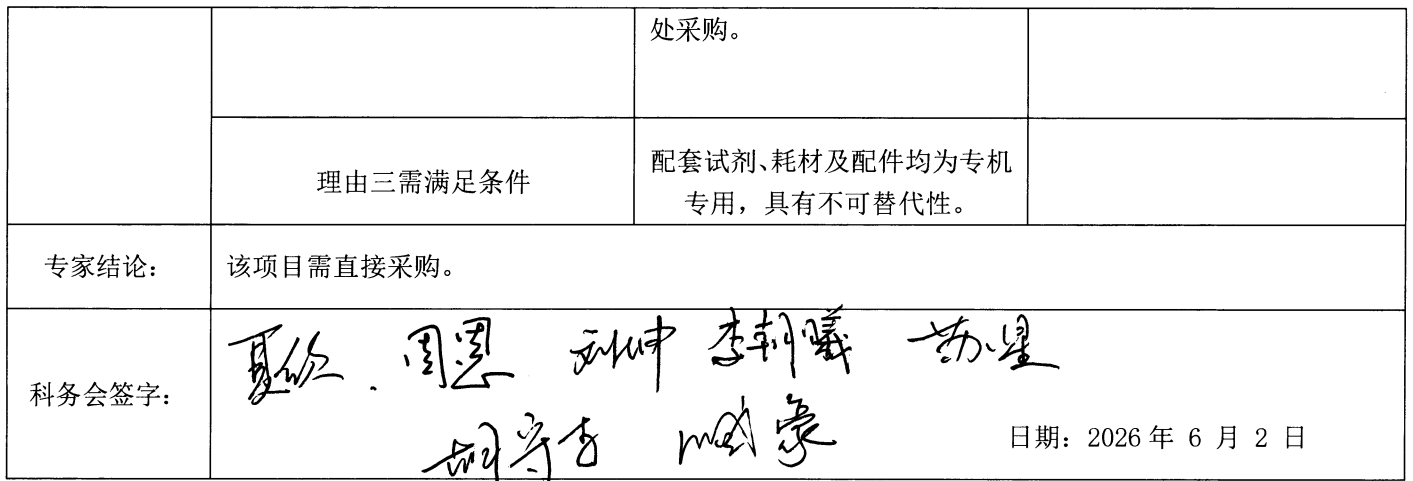 处采购。
理由三需满足条件
配套试剂、耗材及配件均为专机
专用，具有不可替代性。
专家结论：
该项目需直接采购。
科务会签字：
周恩 刘坤 李朝曦 苏星
日期：2026年 6 月 2 日